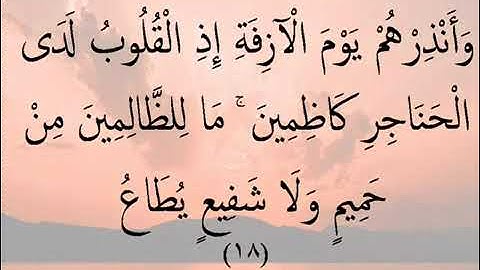 وَأَنْذِرْهُمْ يَوْمَ الْآزِفَةِ إِذِ الْقُلُوبُ لَدَى
الْحَنَاجِرِ كَاظِمِينَ ۚ مَا لِلظَّالِمِينَ مِنْ
حَمِيمٍ وَلَا شَفِيعٍ يُطَاعُ
(١٨)